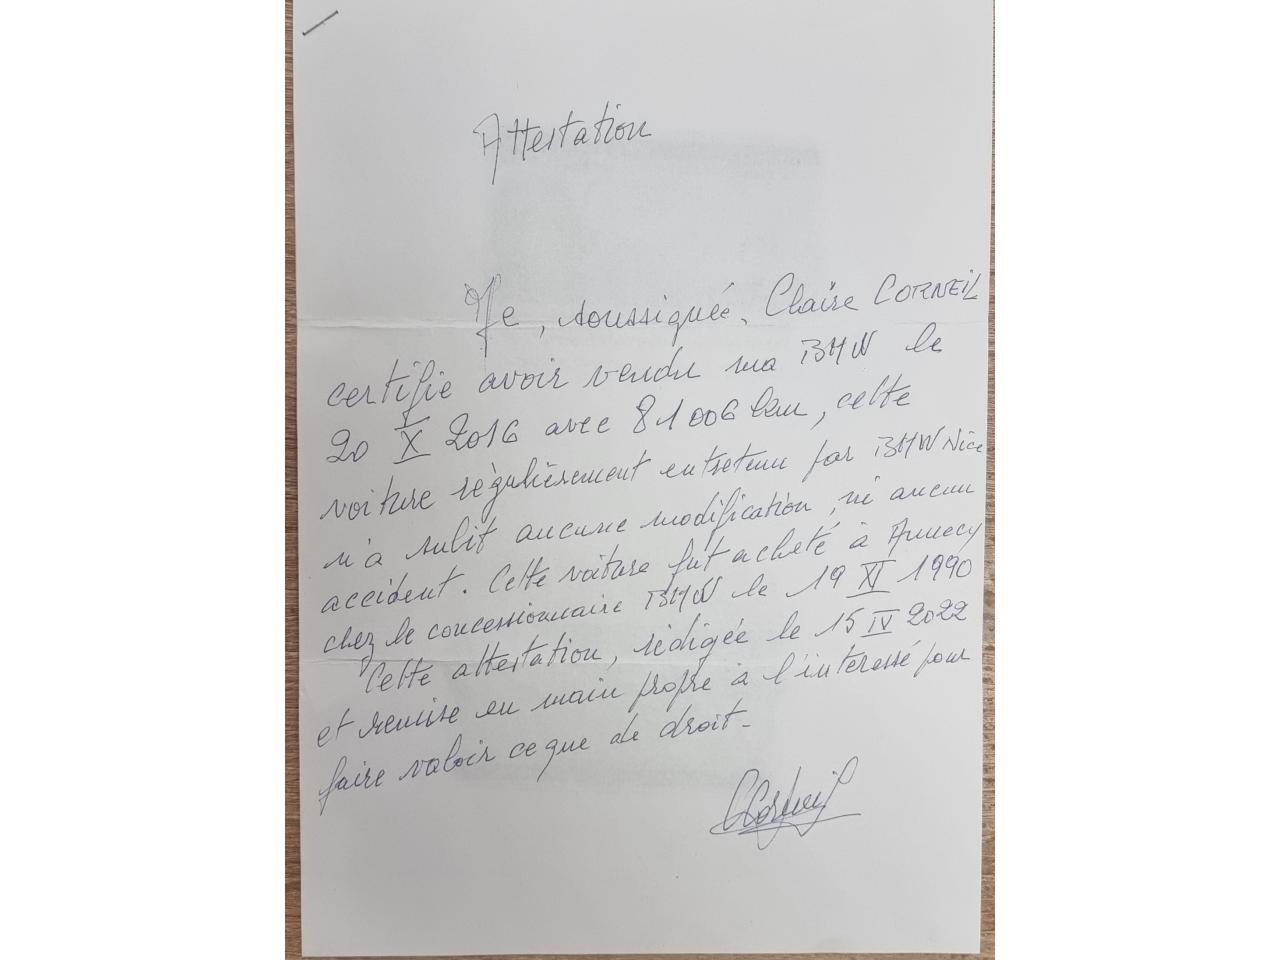 Attestation
Je, soussignée, Claire CORNEIL
certifie avoir vendu ma BMW le
20 X 2016 avec 81 006 km, cette
voiture régulièrement entretenu par BMW Nice
n'a subit aucune modification, ni aucun
accident. Cette voiture fut acheté à Annecy
chez le concessionnaire BMW le 19 XI 1990
Cette attestation, rédigée le 15 IV 2022
et remise en main propre à l'interessé pour
faire valoir ce que de droit.
CCorneil